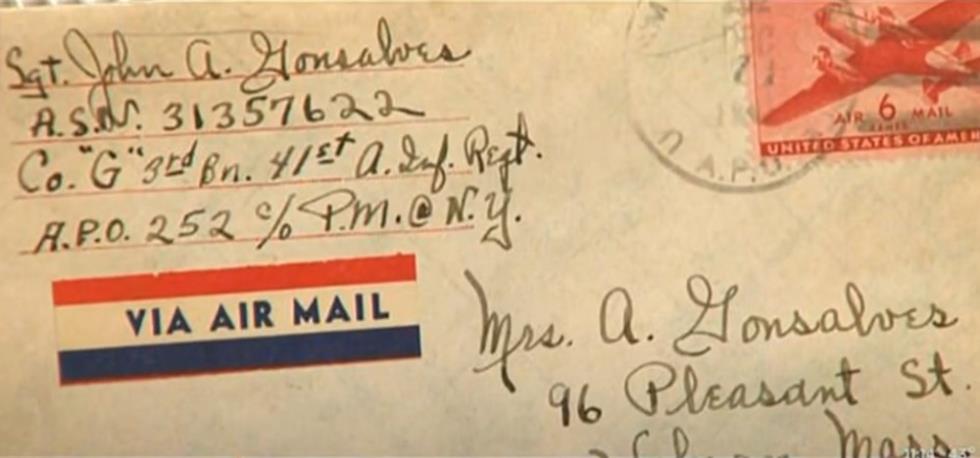 Sgt. John A. Gonsalves
A.S.N. 31357622
Co. "G" 3rd Bn. 41st A. Inf. Regt.
A.P.O. 252 c/o P.M. @ N.Y.
VIA AIR MAIL
AIR 6 MAIL
CENTS
UNITED STATES OF AMER
A.P.O.
Mrs. A. Gonsalves
96 Pleasant St.
Mass.